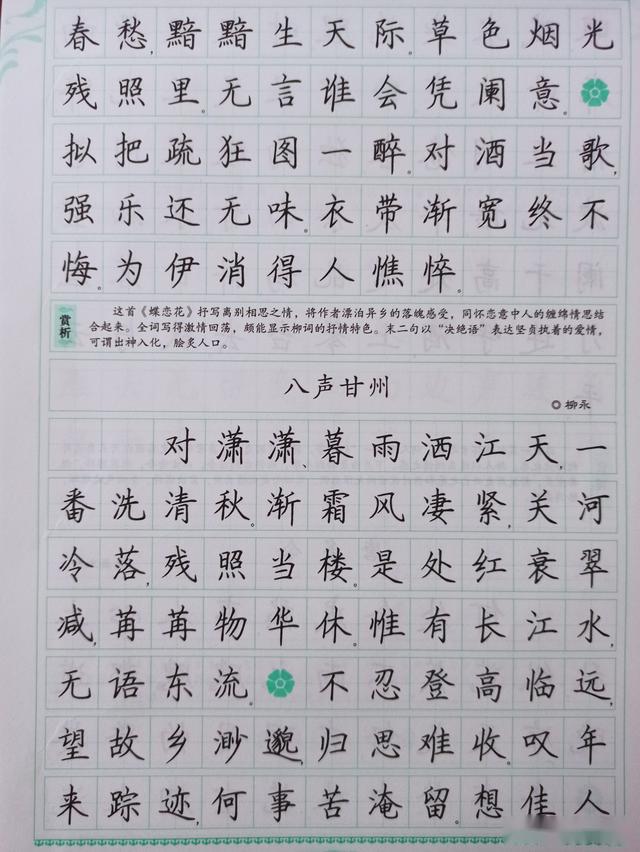 春愁，黯黯生天际。草色烟光
残照里。无言谁会凭阑意。
拟把疏狂图一醉。对酒当歌，
强乐还无味。衣带渐宽终不
悔。为伊消得人憔悴。
赏析
这首《蝶恋花》抒写离别相思之情，将作者漂泊异乡的落魄感受，同怀恋意中人的缠绵情思结
合起来。全词写得激情回荡，颇能显示柳词的抒情特色。末二句以“决绝语”表达坚贞执着的爱情，
可谓出神入化，脍炙人口。
八声甘州
◎柳永
对潇潇、暮雨洒江天，一
番洗清秋。渐霜风凄紧，关河
冷落，残照当楼。是处红衰翠
减，苒苒物华休。惟有长江水，
无语东流。不忍登高临远，
望故乡渺邈，归思难收。叹年
来踪迹，何事苦淹留。想佳人